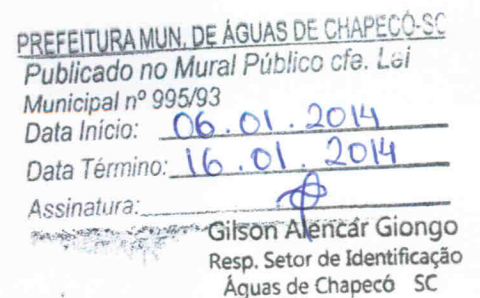 PREFEITURA MUN. DE ÁGUAS DE CHAPECÓ-SC
Publicado no Mural Público cfe. Lei
Municipal nº 995/93
Data Início: 06.01.2014
Data Término: 16.01.2014
Assinatura:
Gilson Alencar Giongo
Resp. Setor de Identificação
Águas de Chapecó SC